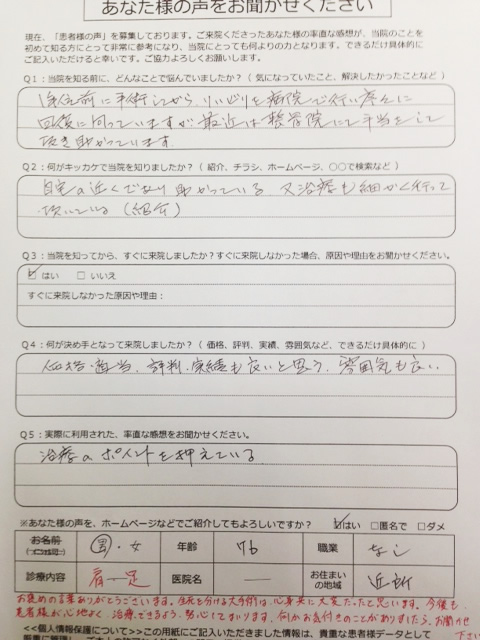 あなた様の声をお聞かせください
現在、「患者様の声」を募集しております。ご来院くださったあなた様の率直な感想が、当院のことを
初めて知る方にとって非常に参考になり、当院にとっても何よりの力となります。できるだけ具体的に
ご記入いただけると幸いです。ご協力よろしくお願いします。
Q1：当院を知る前に、どんなことで悩んでいましたか？（ 気になっていたこと、解決したかったことなど ）
年前に手術してから、リハビリを病院で行い
回復に向っていますが最近は整骨院にて手当をして
頂き助かっています
Q2：何がキッカケで当院を知りましたか？（ 紹介、チラシ、ホームページ、○○で検索など ）
自宅の近くであり助かっている 又治療も細かく行って
頂いている（紹介）
Q3：当院を知ってから、すぐに来院しましたか？すぐに来院しなかった場合、原因や理由をお聞かせください。
☑ はい □ いいえ
すぐに来院しなかった原因や理由：
Q4：何が決め手となって来院しましたか？（ 価格、評判、実績、雰囲気など、できるだけ具体的に ）
価格・適当、評判・実績も良いと思う、雰囲気も良い
Q5：実際に利用された、率直な感想をお聞かせください。
治療のポイントを押えている
※あなた様の声を、ホームページなどでご紹介してもよろしいですか？ ☑はい □匿名で □ダメ
お名前 男・女 年齢 76 職業 なし
診療内容 肩 足 医院名 ― お住まいの地域 近所
お褒めの言葉ありがとうございます。生死を分ける大手術は、心身共に大変だったと思います。今後も
患者様が心地よく、治療できるよう、努めてまいります。何かお気付きのことがありましたら、お聞かせ下さい
<<個人情報保護について>>この用紙にご記入いただきました情報は、貴重な患者様データとして